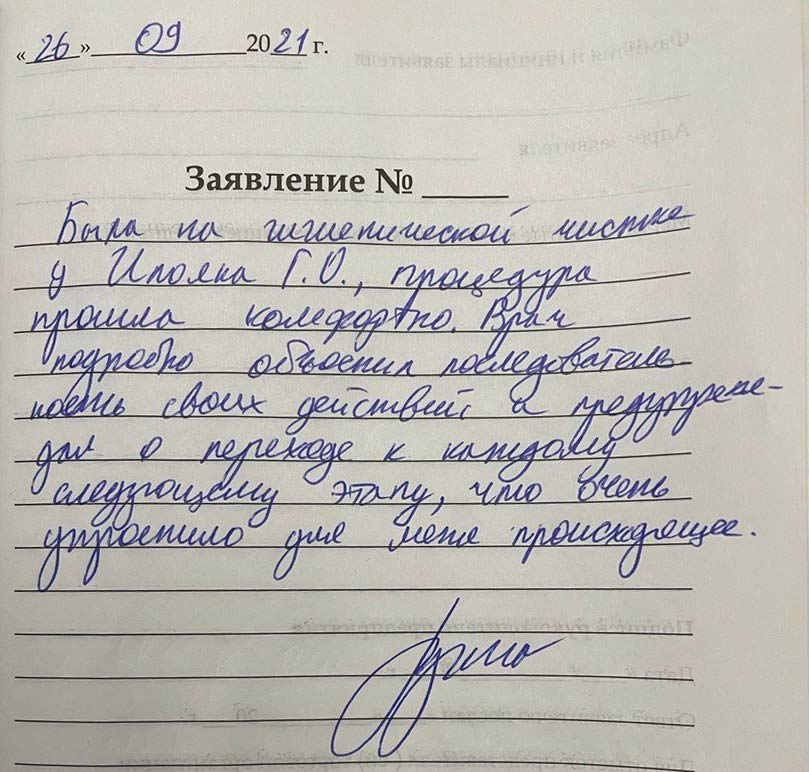 «26» 09 2021 г.
Заявление № ____
Была на гигиенической чистке
у Ипояна Г.О., процедура
прошла комфортно. Врач
подробно объяснил последователь-
ность своих действий и предупреж-
дал о переходе к каждому
следующему этапу, что очень
упростило для меня происходящее.